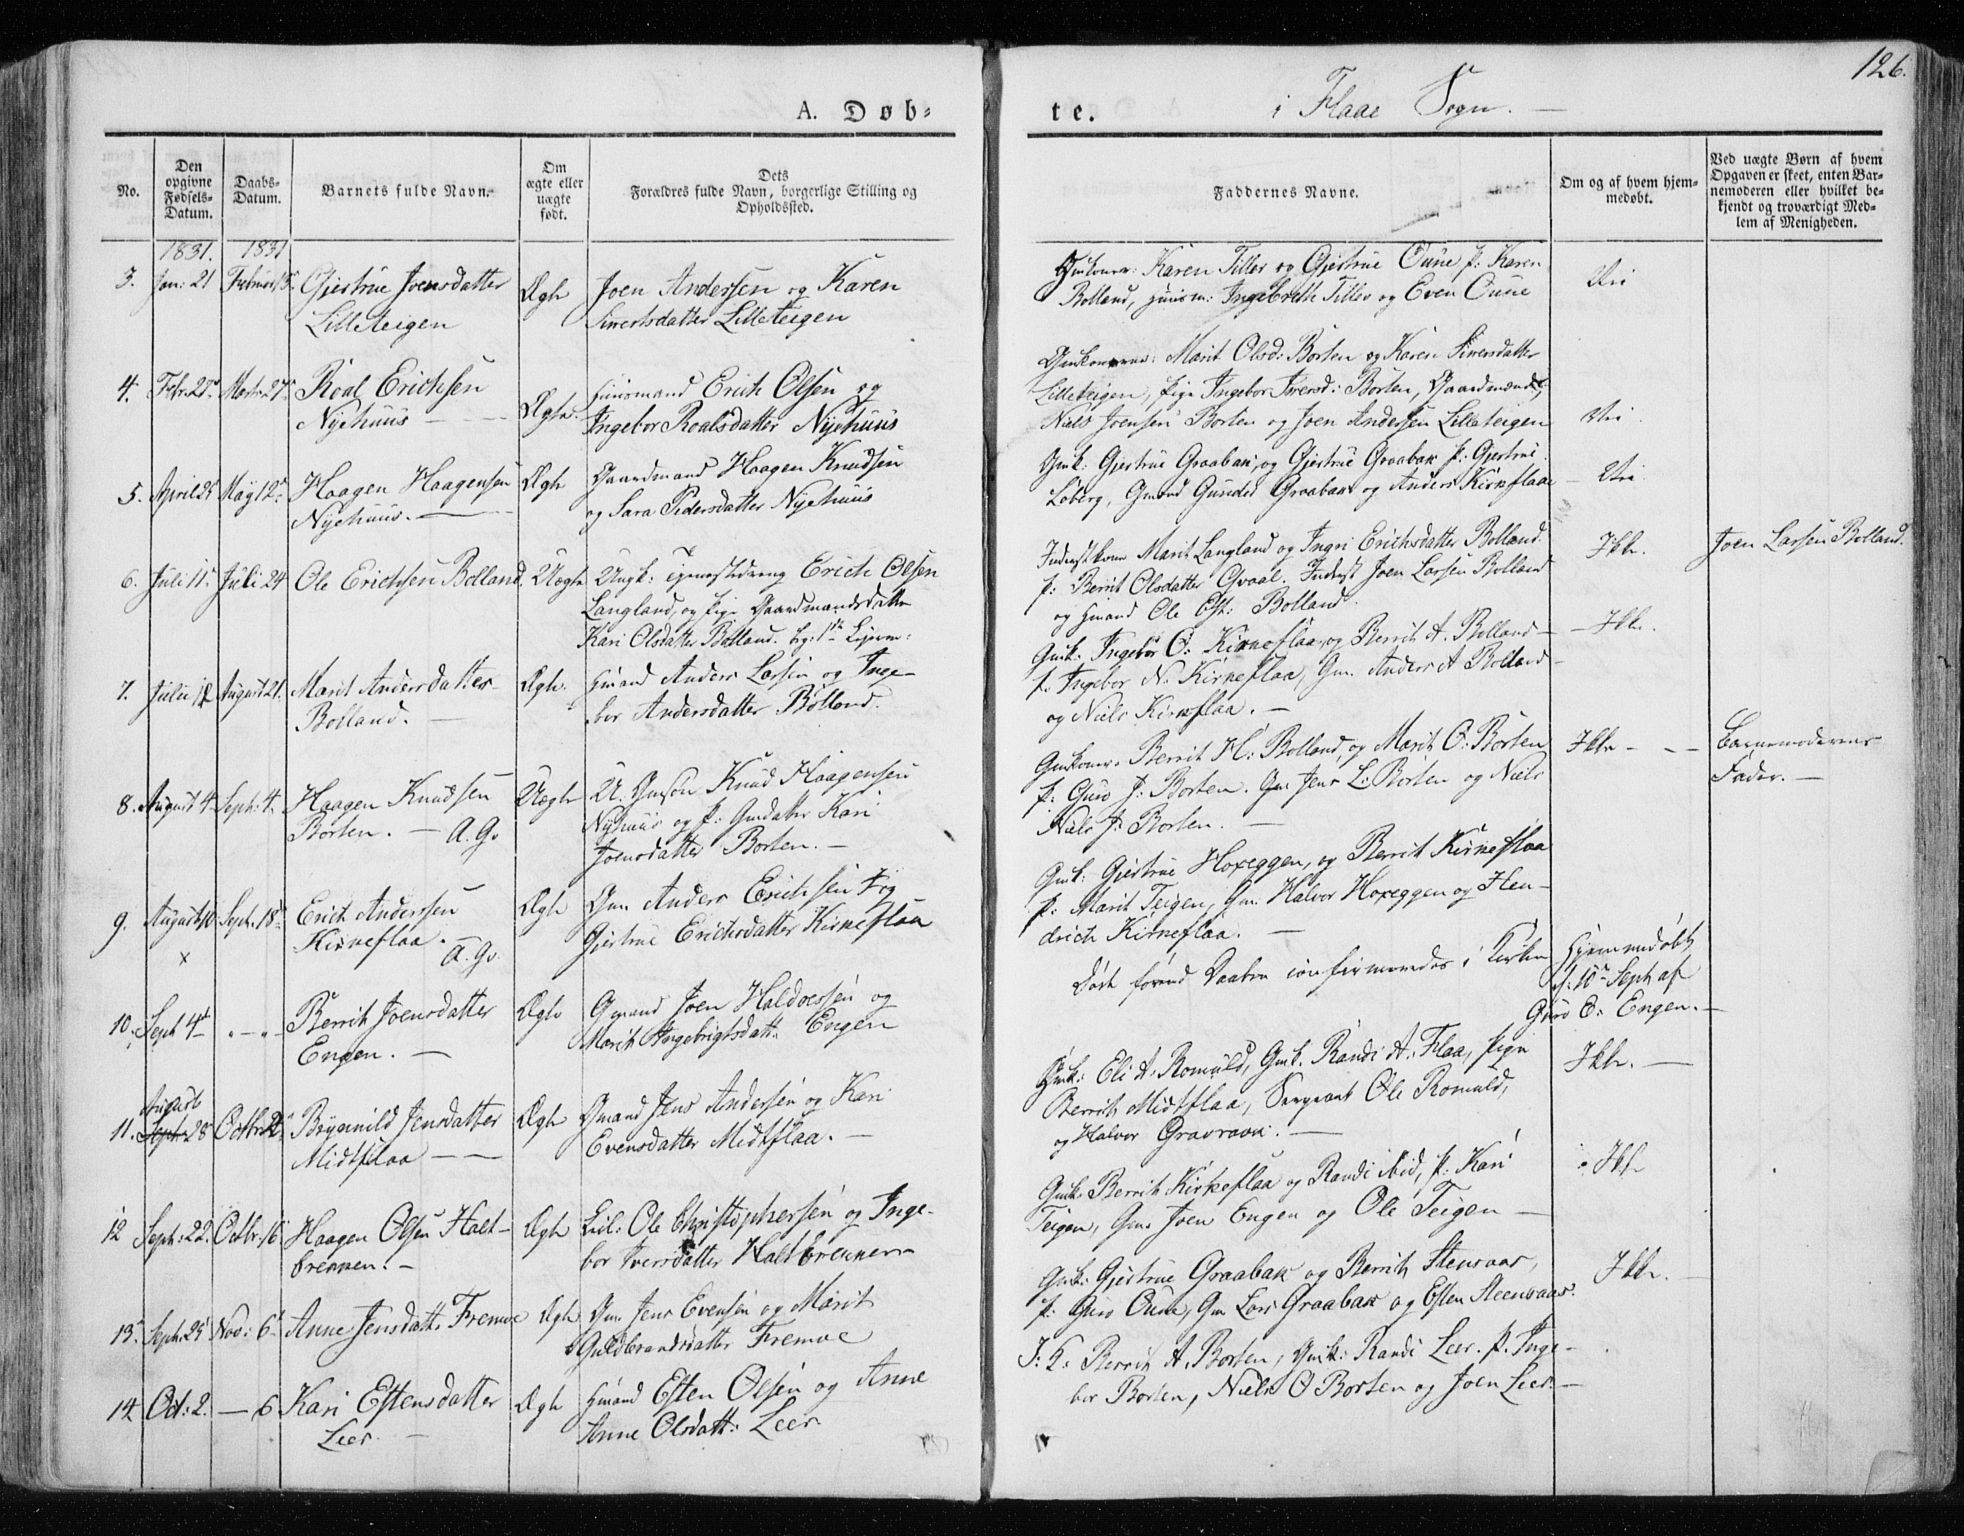 126.
A. Døb-
te. i Flaae Sogn. —
No.
Den opgivne Fødsels-Datum.
Daabs-Datum.
Barnets fulde Navn.
Om ægte eller uægte født.
Dets Forældres fulde Navn, borgerlige Stilling og Opholdssted.
Faddernes Navne.
Om og af hvem hjem-
medøbt.
Ved uægte Børn af hvem
Opgaven er skeet, enten Bar-
nemoderen eller hvilket be-
kjendt og troværdigt Med-
lem af Menigheden.
1831. 1831
3. Jan: 21 Gjertrue Joensdatter Ægte Joen Andersen og Karen
Lilleteigen Siwertsdatter Lilleteigen
Karen Tiller og Gjertrue Oune p: Karen
Bolland, Huusm: Ingebrith Tiller og Even Oune
4. Roal Erichsen Ægte. Huusmand Erich Olsen og
Nyehuus Ingebor Roalsdatter Nyehuus
Marit Olsd: Borten og Karen Siwersdatter
Lilleteigen, Pige Ingebor Borten, Gaardmænd
Niels Joensen Borten og Joen Andersen Lilleteigen
5. April 25 May 12 Haagen Haagensen Ægte Gaardmand Haagen Knudsen
Nyehuus. og Sara Pedersdatter Nyehuus
Gmk: Gjertrue Graabak, og Gjertrue Graabak p: Gjertrue
Loberg, Gmand Gunder Graabak og Anders Kirkeflaae
6. Juli 11 Juli 24 Ole Erichsen Bolland. Uægte Ungk: Tjenestedreng Erich Olsen
Langland, og Pige Gaardmandsdatter
Kari Olsdatter Bolland.
Marit Langland og Ingri Erichsdatter Bolland
p: Berrit Olsdatter Qvaal. Inderst Joen Larsen Bolland
og Hmand Ole Bolland.
Joen Larsen Bolland.
7. August 21. Marit Andersdatter Ægte. Hmand Anders Larsen og Inge-
Bolland. bor Andersdatter Bolland.
Gmk. Ingebor O: Kirkeflaa, og Berrit A. Bolland
p. Ingebor N. Kirkeflaa, Gm. Anders A Bolland
og Niels Kirkeflaa.
8. August 4 Sept: 4. Haagen Knudsen Uægte Knud Haagensen
Borten. — A. G. Nyhuus og p: Kari
Joensdatter Borten. —
Berrit H: Bolland, og Marit O: Borten
p: Guro J: Borten. Gm: Jens L: Borten og Niels
Niels J: Borten.
Barnemoderens
Fader. —
9. August 10 Sept. 18 Erich Andersen Ægte Gm. Anders Erichsen og
x Kirkeflaa. A. G. Gjertrue Erichsdatter Kirkeflaa
Gmk: Gjertrue Hoxeggen, og Berrit Kirkeflaa
p: Marit Teigen, Gm. Halvor Hoxeggen og Hen-
drich Kirkeflaa.
10. Sept 4 Berrit Joensdatter Ægte Gmand Joen Haldorsen og
Engen. — Marit Ingebrigtsdatt: Engen
Døde førend Daaben confirmeredes i Kirken
Hjemmedøbt
d. 10 Sept af
Guro E: Engen. —
11. August Sept: 28 Octbr: 2 Brynild Jensdatter Ægte Gmand Jens Andersen og Kari
Midtflaa Evensdatter Midtflaa. —
Eli A. Romuld, Gmk. Randi A. Flaa, Pige
Berrit Midtflaa, Sergeant Ole Romuld,
og Halvor Gravraak.
12 Sept: 22. Octbr. 16 Haagen Olsen Halt- Ægte Ole Christophersen og Inge-
brennen. — bor Iversdatter Haltbrennen
Gmk. Berrit Kirkeflaa og Randi ibid, p. Kari
Teigen, Gm. Joen Engen og Ole Teigen —
13. Sept: 25 Nov: 6 Anne Jensdatt: Fremoe Ægte Gm. Jens Evensen og Marit
Guldbrandsdatter Fremoe
Gmk: Gjertrue Graabak og Berrit Steenvaas,
p. Guro Oune, Gm Lars Graabak og Esten Steenvaas.
14 Oct: 2. — 6 Kari Estensdatter Ægte Hmand Esten Olsen og Anne
Leer. Anne Olsdatt: Leer
Berrit A. Borten, Gmk: Randi Leer. p. Inge-
bor Borten, Niels O Borten og Joen Leer. —